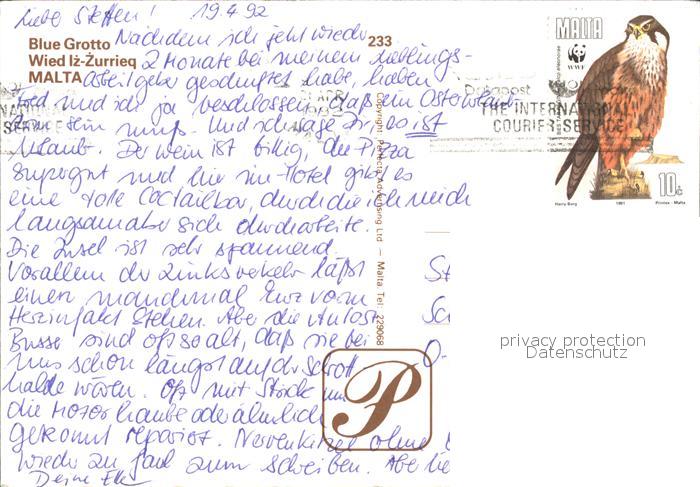 Liebe Steffen! 19.4.92
Blue Grotto
Wied Iż-Żurrieq
MALTA
233
Nachdem ich jetzt wieder
2 Monate bei meinem Lieblings-
arbeitgeber geschuftet habe, haben
und ich ja beschlossen, daß ein Osterurlaub
sein muß. Und ich sage Dir, es ist
Urlaub. Der Wein ist billig, die Pizza
supergut und hier im Hotel gibt es
eine tolle Coctailbar, durch die ich mich
langsam aber sich durcharbeite.
Die Insel ist sehr spannend.
Vorallem der Linksverkehr läßt
einen manchmal kurz vorm
Herzinfakt stehen. Aber die Autos +
Busse sind oft so alt, daß sie bei
uns schon längst auf der Schrott
halde wären. Oft mit Strick um
die Motorhaube oder ähnlich
gekonnt repariert. Nervenkitzel ohne
wieder zu faul zum Schreiben. Aber
Deine
Copyright Perfecta Advertising Ltd – Malta Tel: 229068
P
MALTA
WWF
10c
Harry Borg 1991 Printex - Malta
THE INTERNATIONAL
COURIER SERVICE
privacy protection
Datenschutz